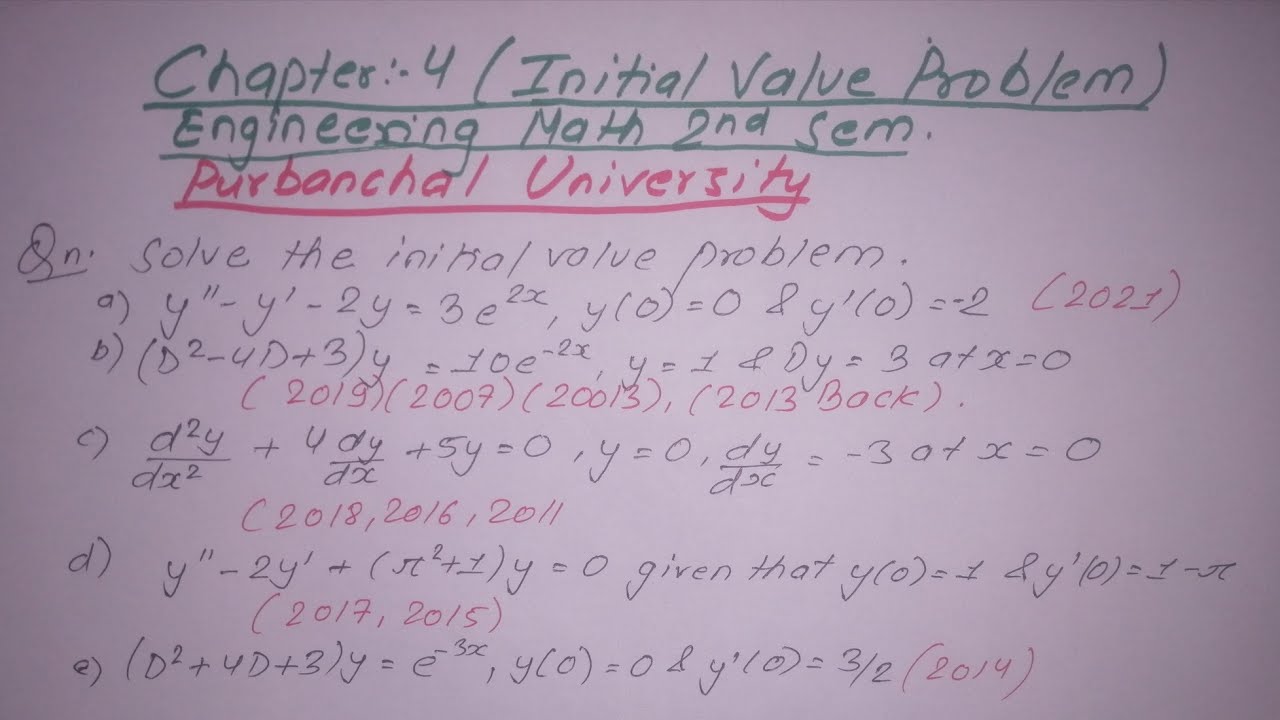 Chapter:-4 (Initial Value Problem)
Engineering Math 2nd sem.
Purbanchal University
Qn. Solve the initial value problem.
a) y'' - y' - 2y = 3e^2x, y(0)=0 & y'(0) =-2 (2021)
b) (D²-4D+3)y =10e^-2x, y=1 & Dy=3 at x=0
(2019)(2007)(20013),(2013 Back).
c) d²y/dx² + 4dy/dx +5y=0, y=0, dy/dx = -3 at x=0
(2018,2016,2011
d) y''-2y' + (π²+1)y=0 given that y(0)=1 & y'(0)=1-π
(2017, 2015)
e) (D²+4D+3)y=e^-3x, y(0)=0 & y'(0)=3/2 (2014)